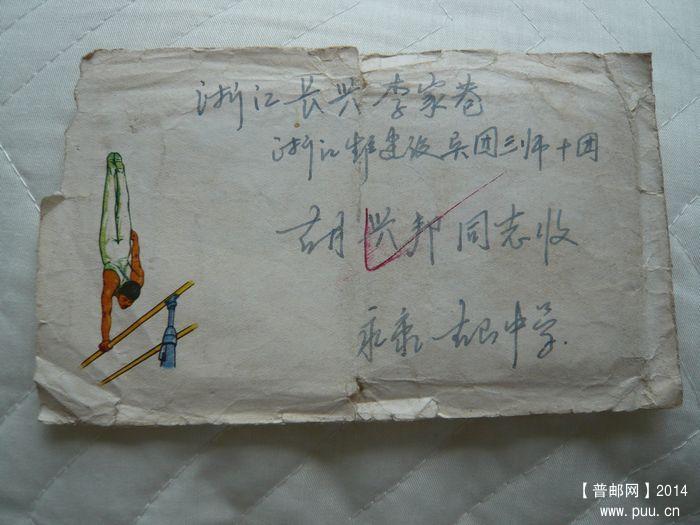 浙江长兴李家巷
浙江生产建设兵团三师十团
胡兴邦同志收
永康 古山中学.
【普邮网】2014
www.puu.cn